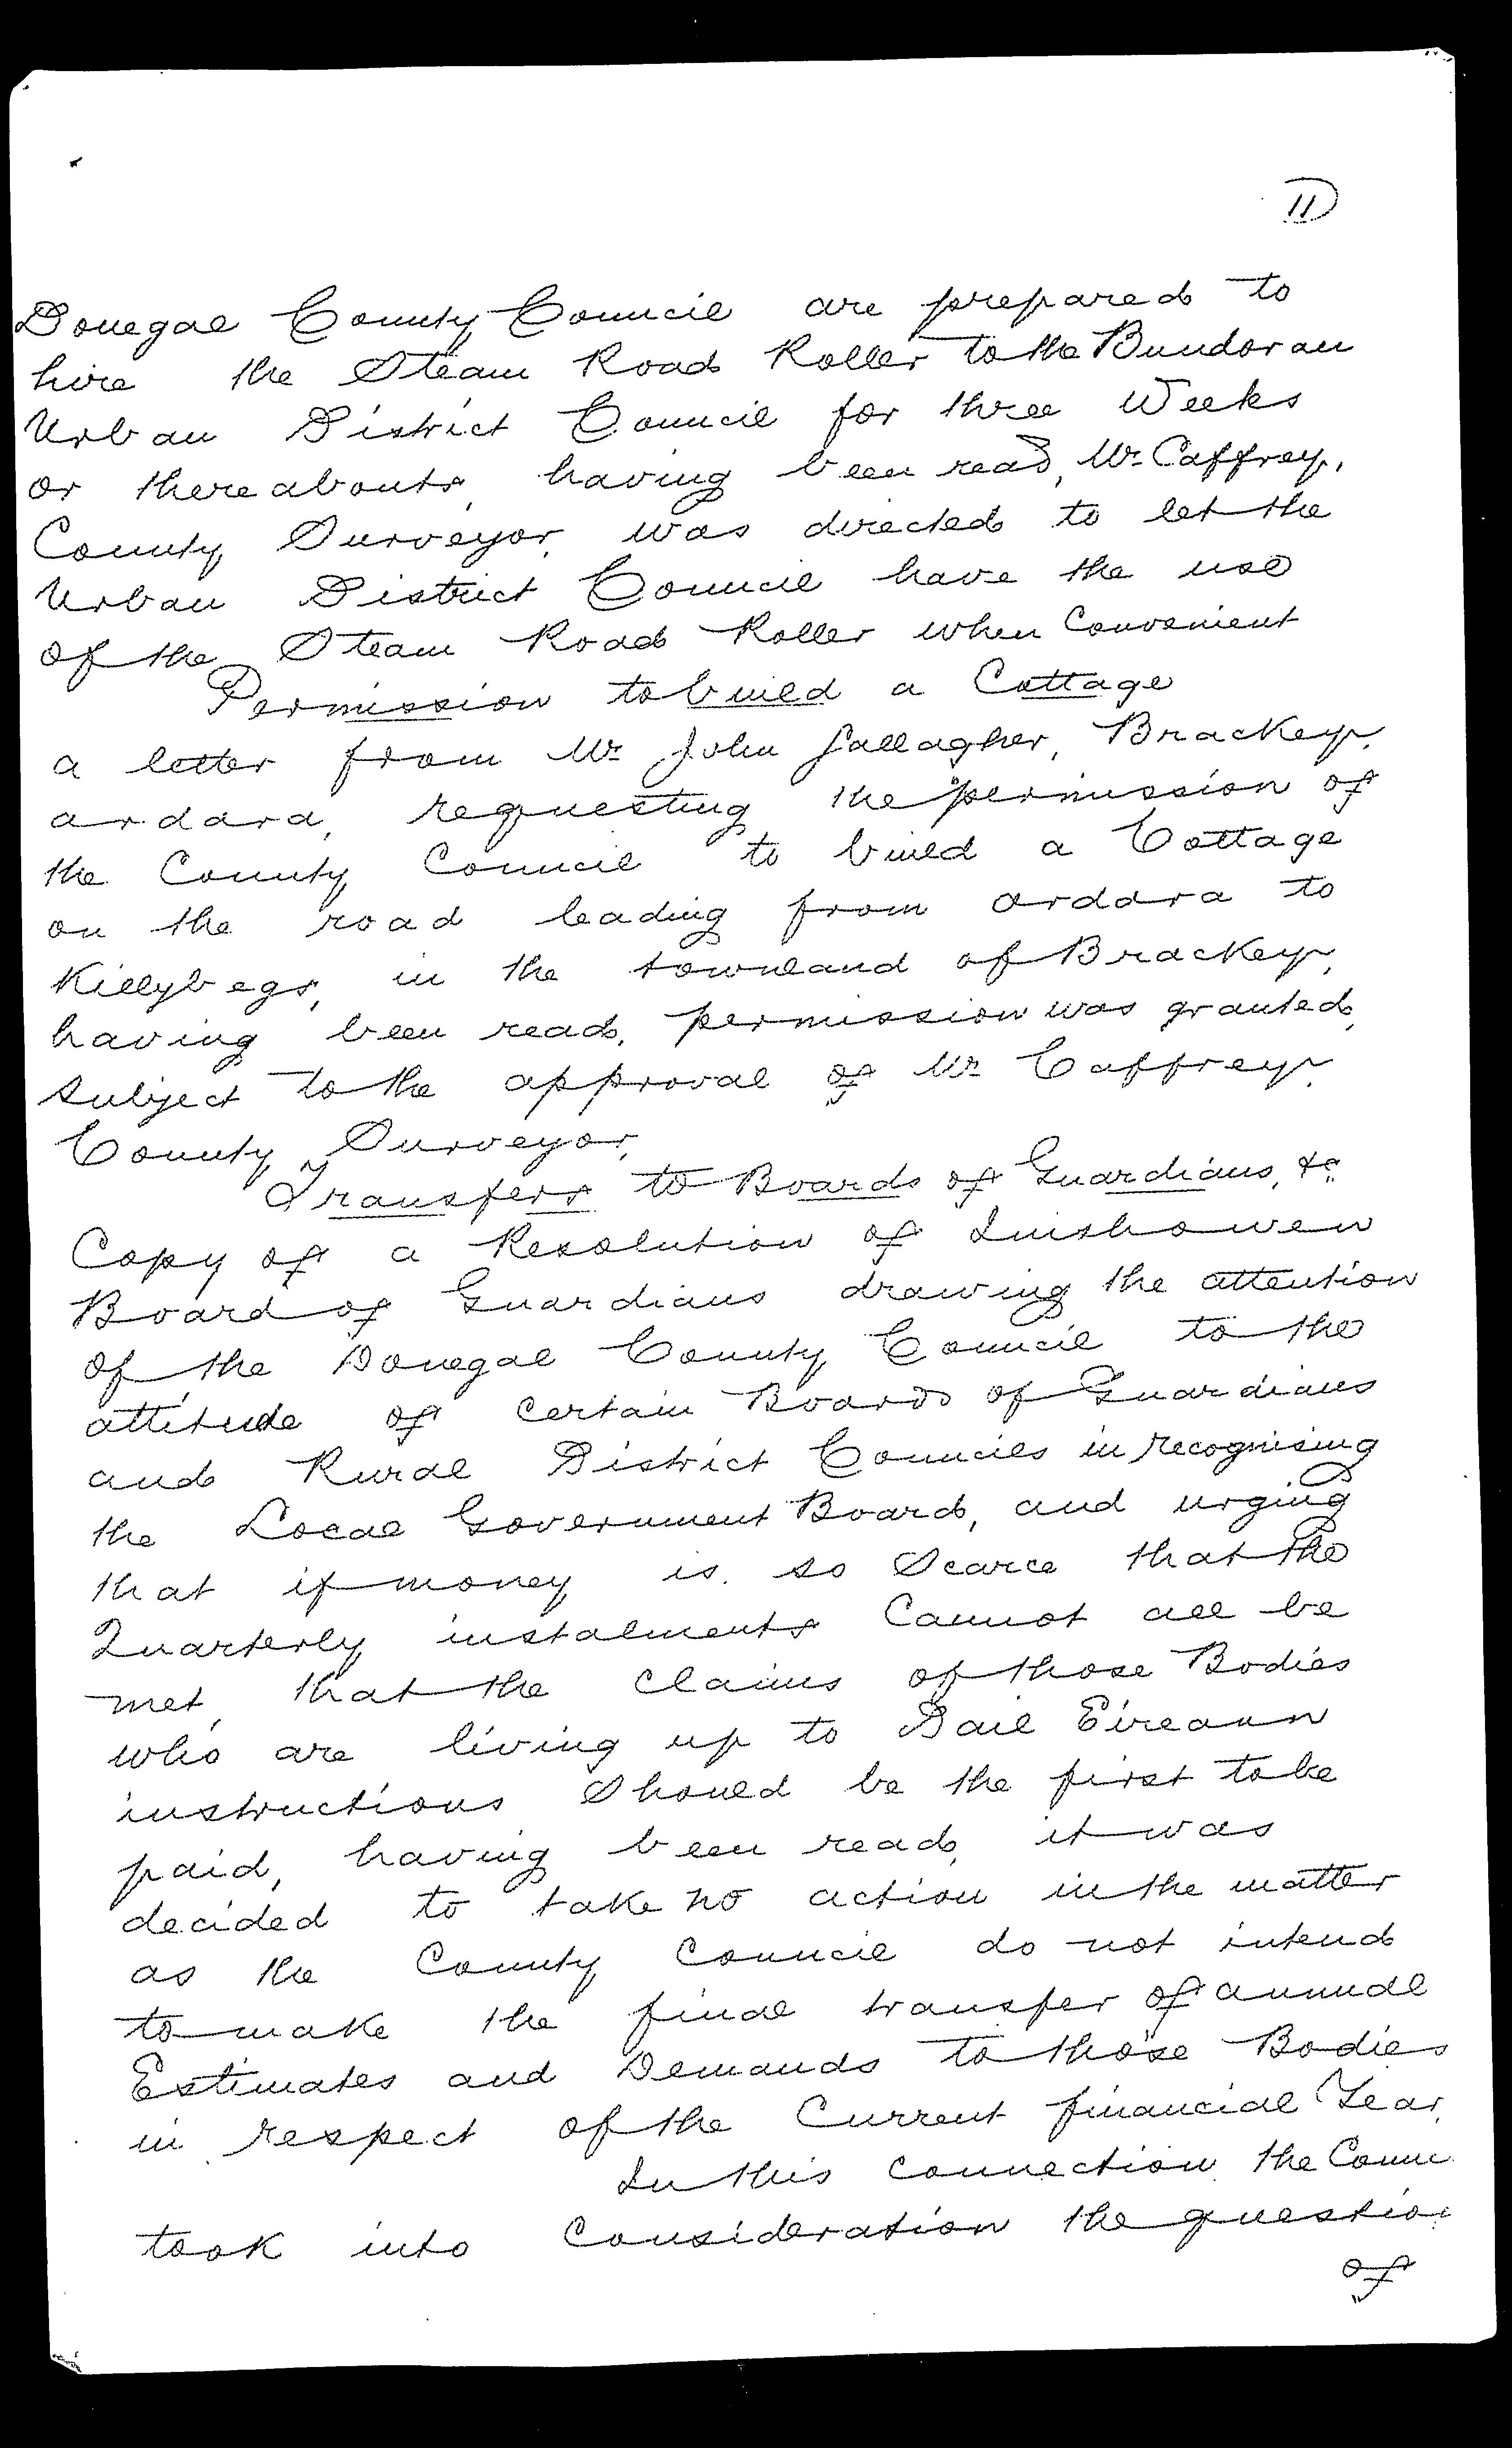 11
Donegal County Council are prepared to
hire the Steam Road Roller to the Bundoran
Urban District Council for three Weeks
or thereabouts, having been read, Mr. Caffrey,
County Surveyor, was directed to let the
Urban District Council have the use
of the Steam Road Roller when Convenient
Permission to build a Cottage
a letter from Mr John Gallagher, Brackey,
ardara, requesting the permission of
the County Council to build a Cottage
on the road leading from ardara to
Killybegs, in the townland of Brackey,
having been read, permission was granted,
subject to the approval of Mr Caffrey,
County Surveyor,
Transfers to Boards of Guardians, &c
Copy of a Resolution of Inishowen
Board of Guardians drawing the attention
of the Donegal County Council to the
attitude of certain Boards of Guardians
and Rural District Councils in recognising
the Local Government Board, and urging
that if money is so Scarce that the
Quarterly instalments Cannot all be
met, that the claims of those Bodies
who are living up to Dail Eireann
instructions Should be the first to be
paid, having been read, it was
decided to take no action in the matter
as the County Council do not intend
to make the final transfer of annual
Estimates and Demands to those Bodies
in respect of the Current financial Year,
In this connection the Counc
took into Consideration the question
of